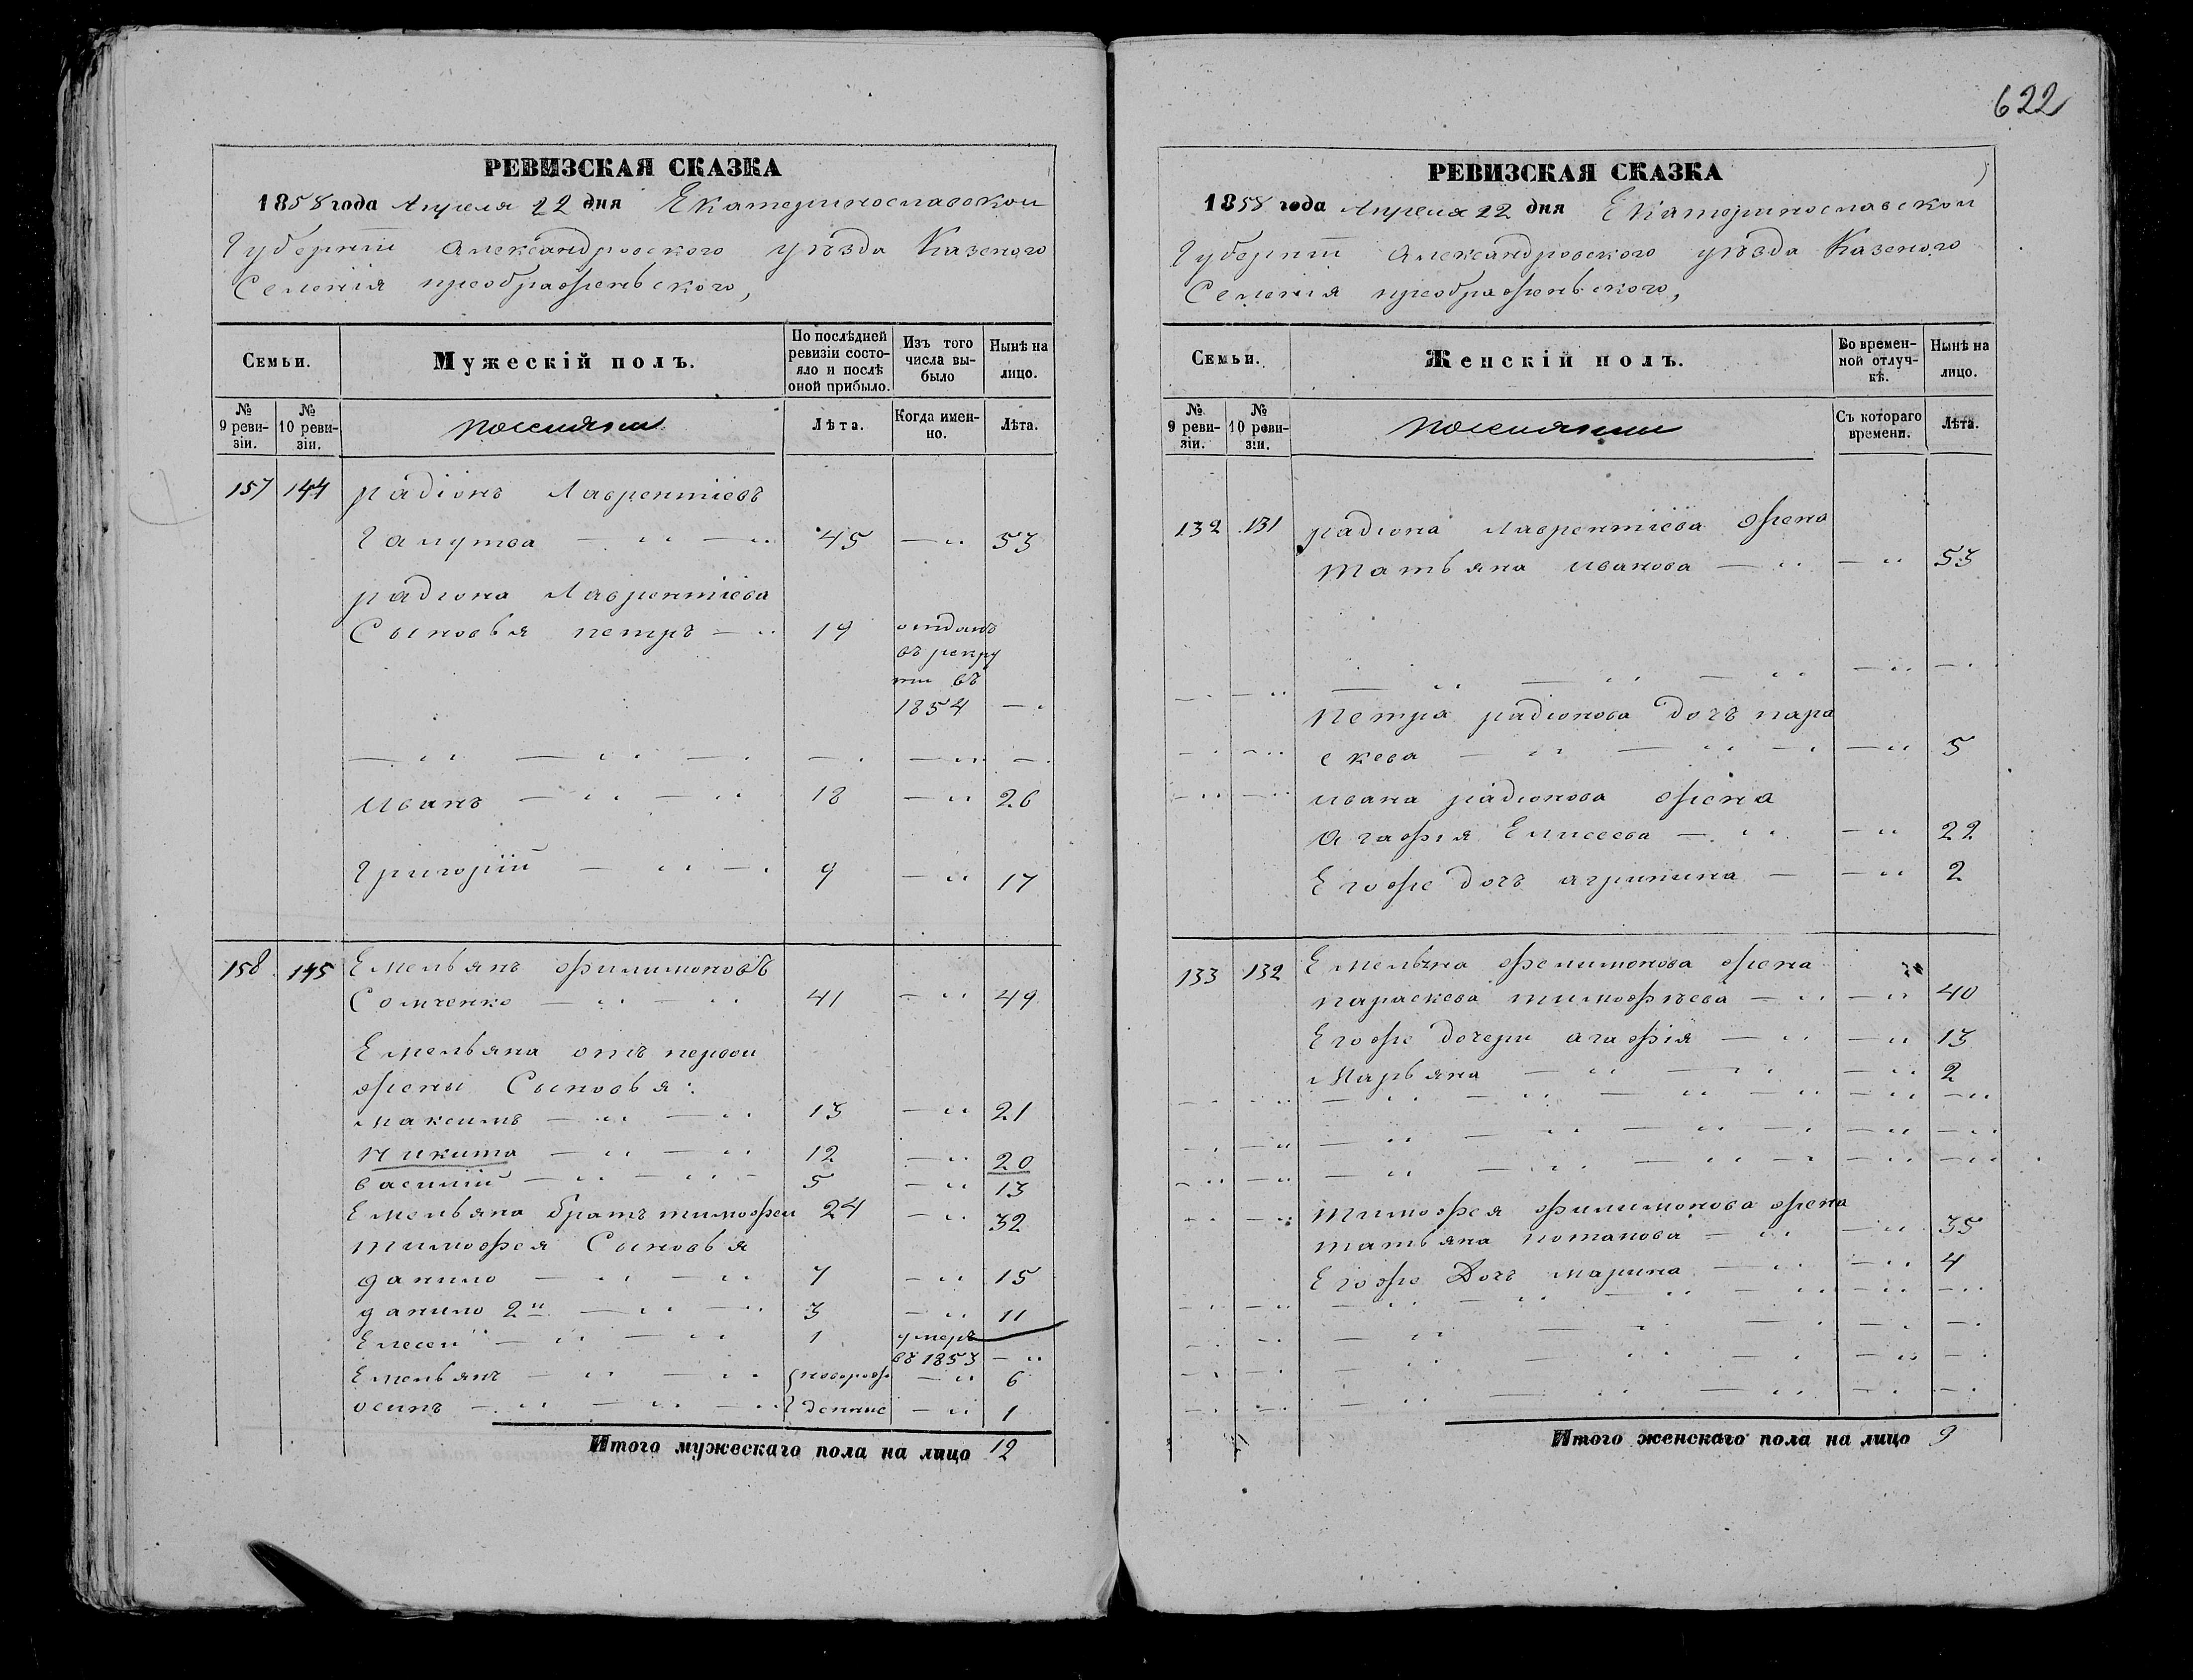 РЕВИЗСКАЯ СКАЗКА
1858 года Апреля 22 дня Екатеринославской
Губерніи Александровского уѣзда Казеного
Селенія преображеньского,
Семьи.
Мужескій полъ.
По послѣдней ревизіи состояло и послѣ оной прибыло.
Изъ того числа выбыло
Нынѣ на лицо.
№ 9 ревизіи.
№ 10 ревизіи.
поселяни
Лѣта.
Когда именно.
Лѣта.
157 144 радіонъ Лаврентіевъ
Галутва — " — " 45 — " 53
радіона Лаврентіева
Сыновья петръ — " 19 отданъ
въ рекру
ти въ
1854 — "
— " — " — — " — " — "
Иванъ — " — " 18 — " 26
Григорій — " — " 9 — " 17
158 145 Емельянъ филимоновъ
Сомченко — " — " 41 — " 49
Емельяна отъ первои
жены Сыновья:
максимъ — " — " 13 — " 21
никита — " — " 12 — " 20
василий — " — " — 5 — " 13
Емельяна братъ тимофеи 24 — " 32
тимофея Сыновья
данило — " — " 7 — " 15
данило 2й — " — " 3 — " 11
Елесей — " — " 1 умеръ
въ 1853 — "
Емельянъ — " — " новорож — " 6
осипъ — " — " — " денние — " 1
Итого мужескаго пола на лицо 12
622
РЕВИЗСКАЯ СКАЗКА
1858 года Апреля 22 дня Екатеринославской
Губерніи Александровского уѣзда Казеного
Селенія преображеньского,
Семьи.
Женскій полъ.
Во временной отлучкѣ.
Нынѣ на лицо.
№ 9 ревизіи.
№ 10 ревизіи.
поселянии
Съ котораго времени.
Лѣта.
132 131 радиона лаврентіева жена
татьяна иванова — " — " 53
— " — " — " — " — " — " — "
петра радионова дочъ пара
— " — " скева — " — " — " — " 5
— " — " ивана радионова жена
агафія Елисеева — " — " 22
Егоже дочъ агрипина — — " 2
133 132 Емельяна филимонова жена
параскева тимофѣева — " — " 40
Егоже дочери агафія — " — " 13
Марьяна — " — " — " 2
— " — " — " — " — " — " — " — "
— " — " — " — " — " — " — " — "
— " — " — " — " — " — " — " — "
— " — " тимофея филимонова жена
татьяна потапова — " — " 35
Егоже Дочъ марина — " — " 4
— " — " — " — " — " — " — " — "
— " — " — " — " — " — "
— " — " — " — " — " — "
— " — " — " — " — " — " — "
Итого женскаго пола на лицо 9